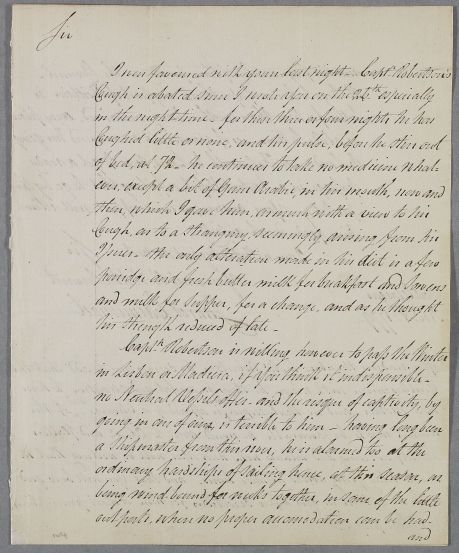 Sir
I was favoured with your last night - Capt. Robertson's
Cough is abated since I wrote you on the 26th especially
in the night time - for this three or four nights he has
Coughed little or none, and his pulse, before he stirs out
of bed, at 72 - he continues to take no medicine what-
ever, except a bit of Gum Arabic in his mouth, now and
then, which I gave him, as much with a view to his
Cough, as to a strangury, seemingly arising from his
the only alteration made in his diet is a few
porridge and fresh butter milk for breakfast and Sowens
and milk for supper, for a change, and as he thought
his strength reduced of late -
Capt. Robertson is willing however to pass the Winter
in Lisbon or Madeira, if you think it indispensible -
no Neutral Vessels offer - and the risque of captivity, by
going in one of ours, is terrible to him - having long been
a shipmaster from this river, he is alarmed too at the
ordinary hardships of sailing hence, at this season, or
being wind bound for weeks together, in some of the little
out ports, when no proper accomodation can be had -
and